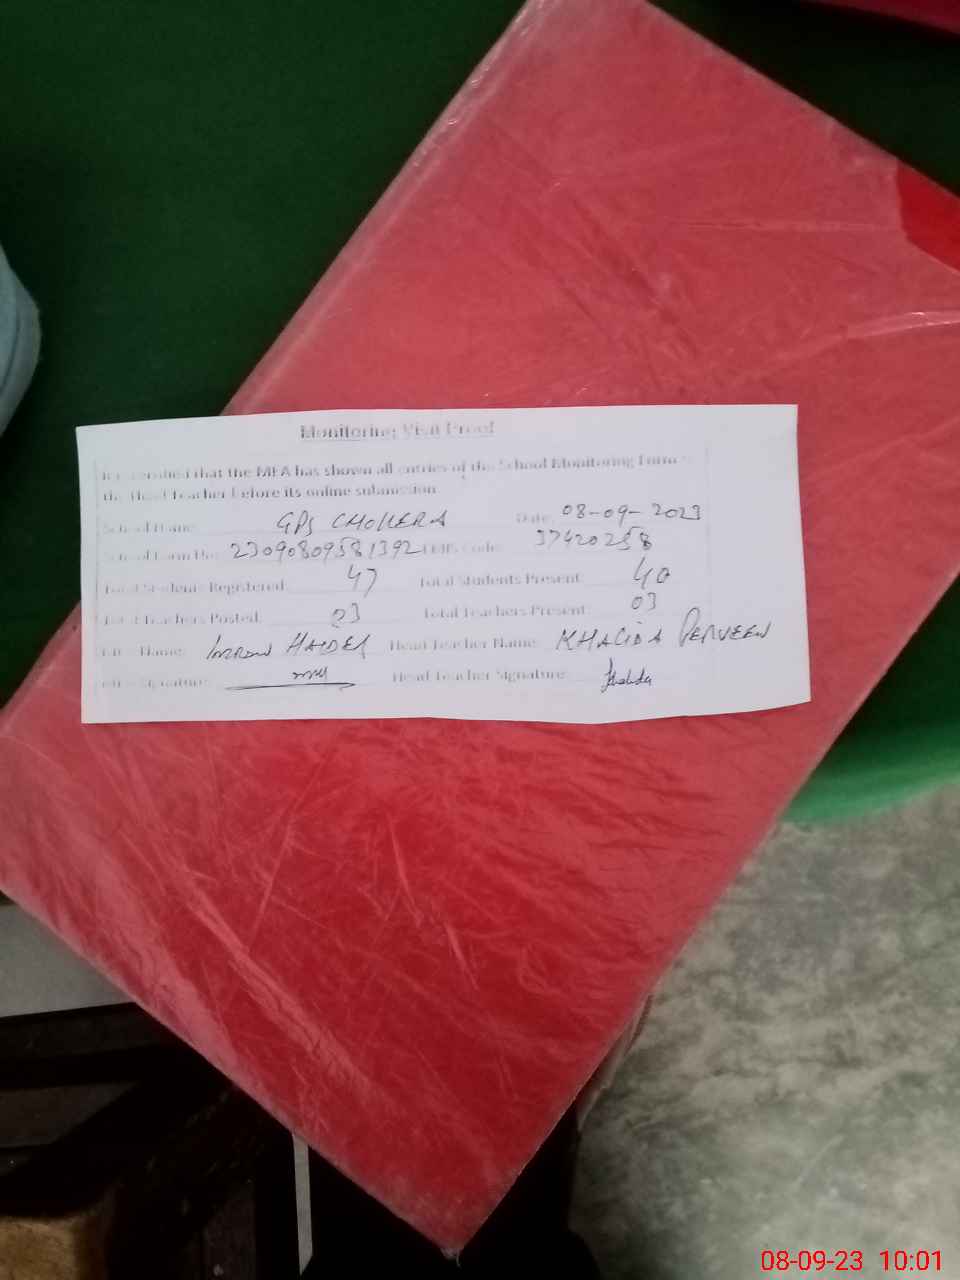 Monitoring Visit Proof
It is certified that the MEA has shown all entries of the School Monitoring Form to
the Head Teacher before its online submission.
School Name: GPS CHOKERA Date: 08-09-2023
School Form No: 23090809581392 EMIS Code: 37420258
Total Students Registered: 47 Total Students Present: 40
Total Teachers Posted: 03 Total Teachers Present: 03
Name: IMRAN HAIDER Head Teacher Name: KHALIDA PERVEEN
Signature: Head Teacher Signature: Khalida
08-09-23 10:01